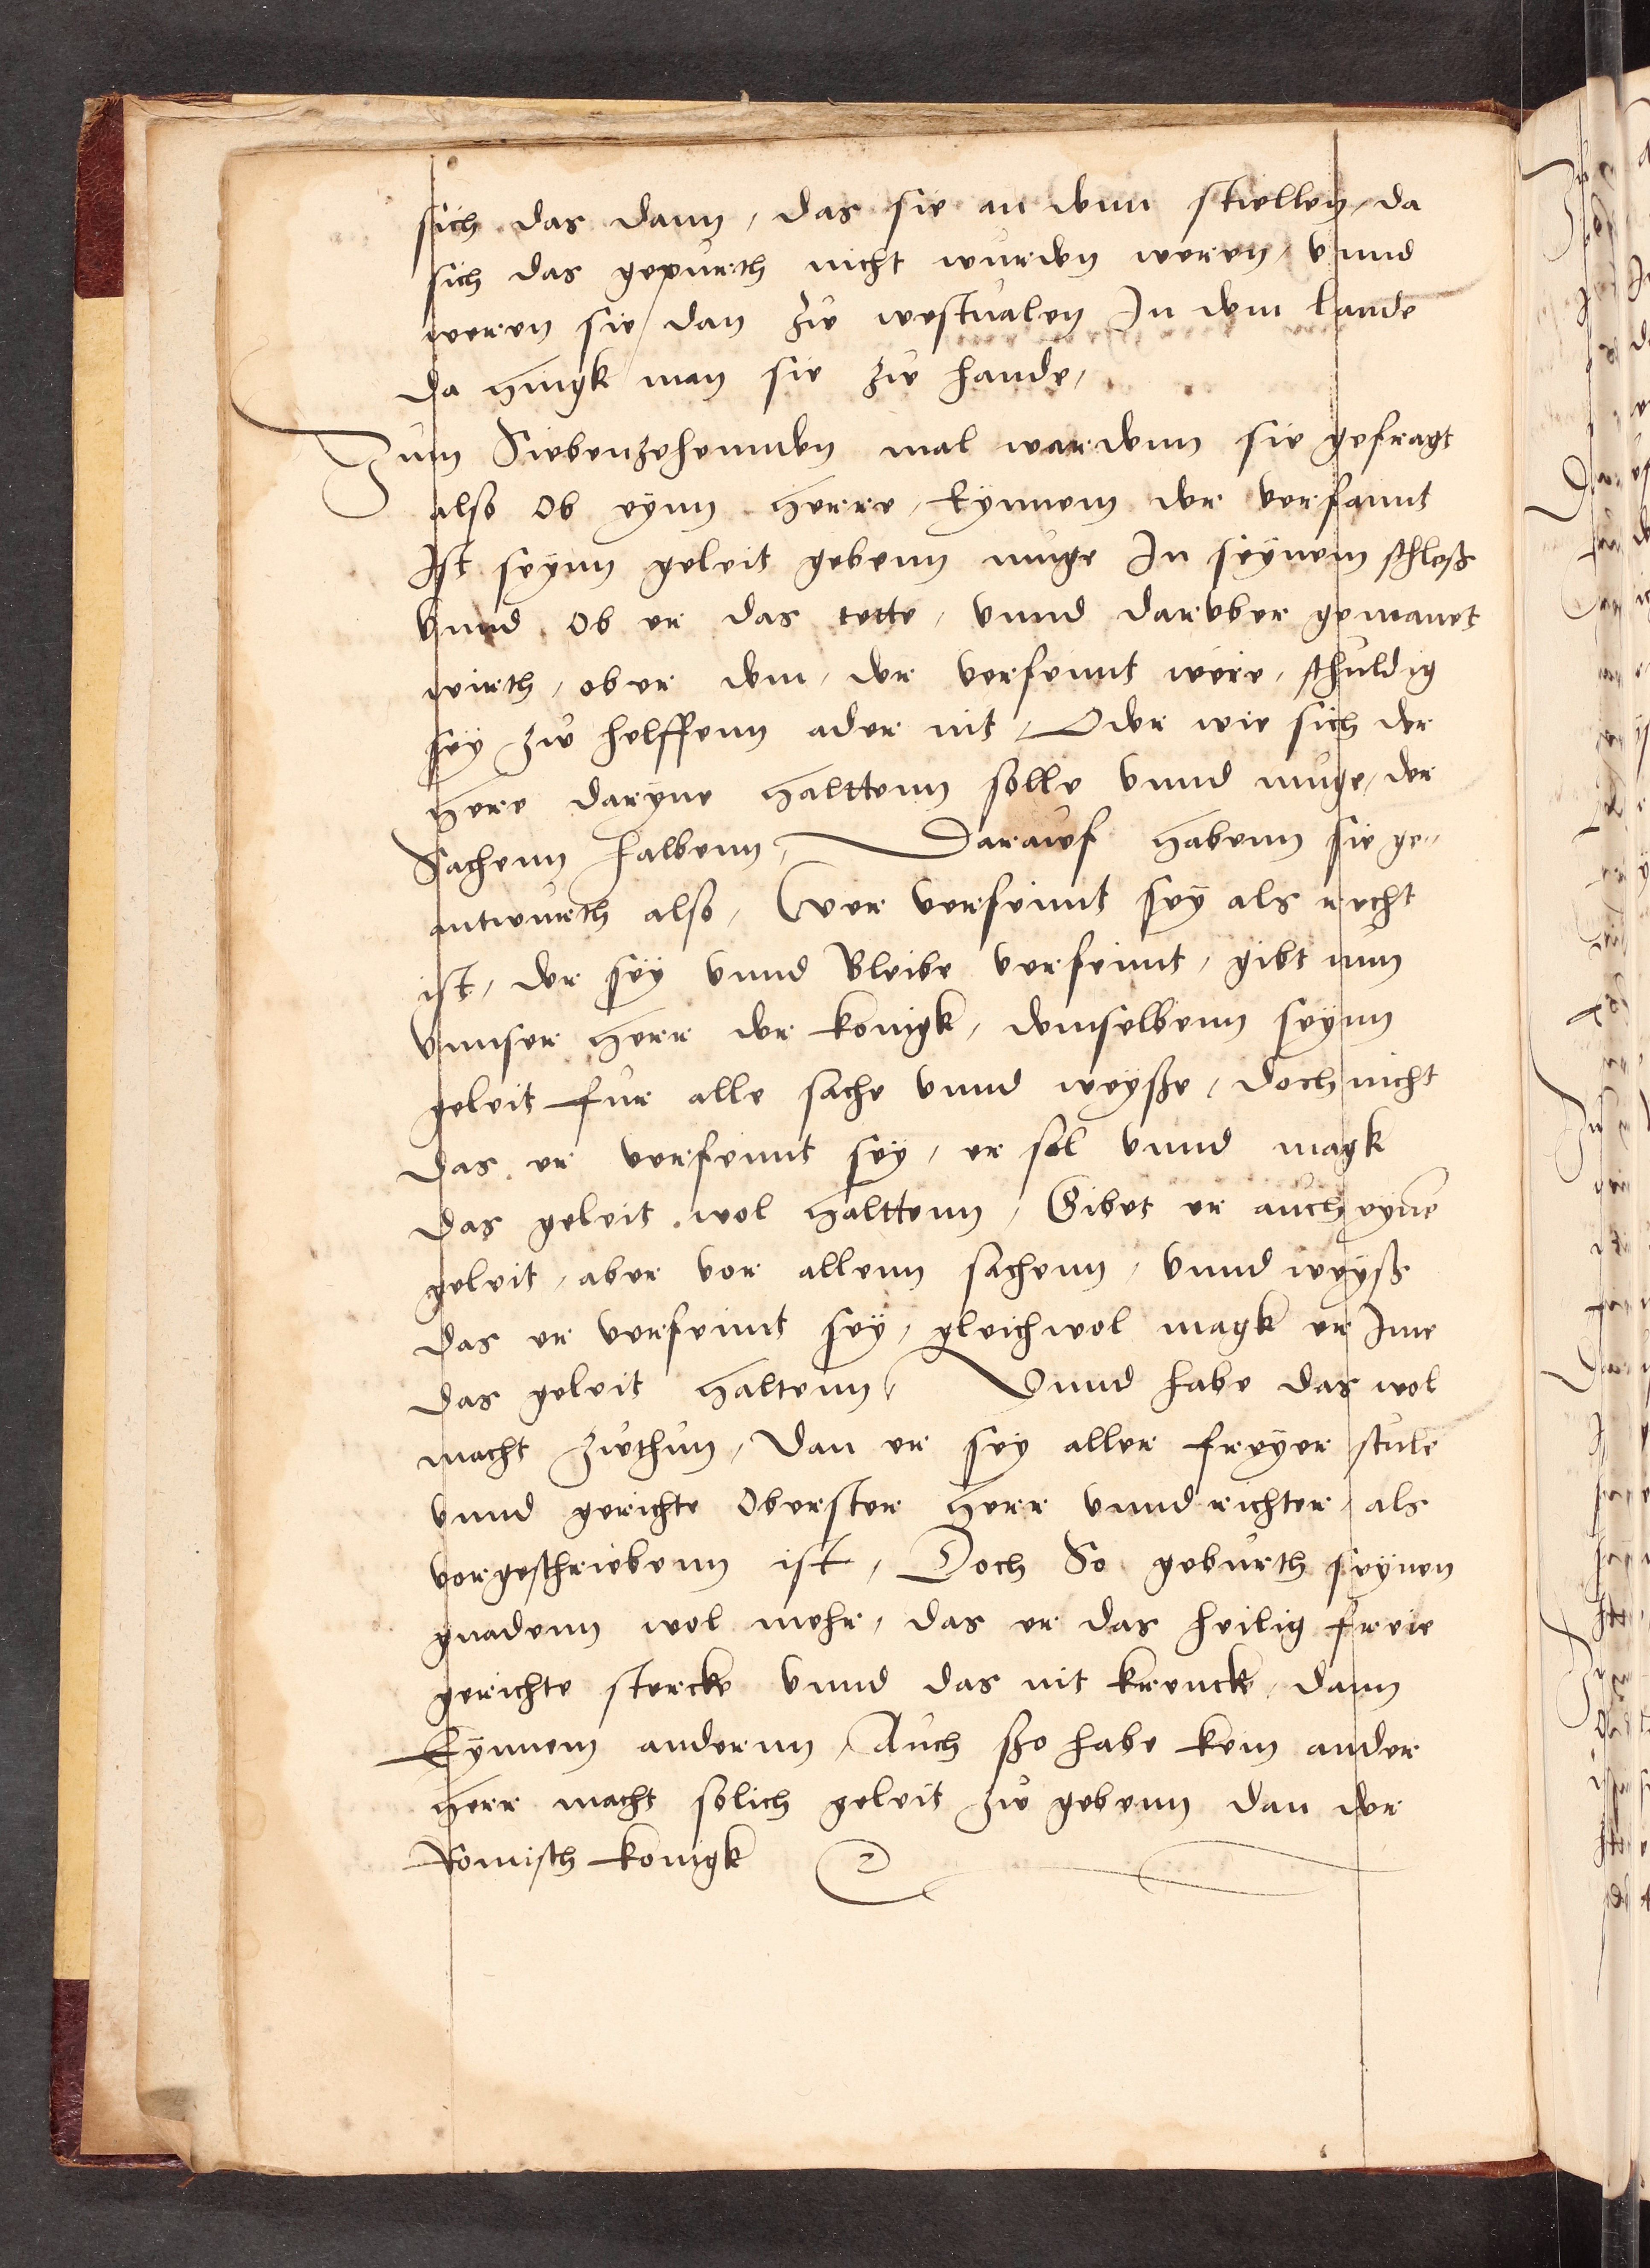 sich das dann, das sie an denn stellen, da
sich das gepurth nicht wurden weren, vnnd
weren sie dan zu westualen In dem lande
da hingk man sie zu hande,
Zum Siebenzehennden mal wardenn sie gefragt
also Ob eynn Herre, Eynnem der verfaimt
Ist seynn geleit gebenn muge In seynem schloß
vnnd Ob er das tette, vnnd daruber gemanet
wirth, ob er dem, der verfemt were, schuldig
sey zu helffenn ader nit, Oder wie sich der
Here daryne Halttenn solle vnnd muge, der
Sachenn halbenn, Darauf Habenn sie ge-
antwurth also, Wer verfeimt sey als recht
ist, der sey vnnd Bleibe verfeimt, gibt nun
vnnser Herr der konigk, demselbenn seynn
geleit fur alle sache vnnd weysse, doch nicht
das er verfemt sey, er sol vnnd magk
das geleit wol Halttenn, Gibet er auch eyne
geleit, aber vor allenn sachenn, vnnd weyß
das er verfeimt sey, gleichwol magk er Ime
das geleit Haltenn, Vnnd habe das wol
macht zuthun, Dan er sey aller freyer stule
vnnd gerichte Oberster Herr vnnd richter, als
vorgeschriebenn ist, Doch So geburth seynen
gnadenn wol mehr, das er das heilig freie
gerichte stercke vnnd das nit krencke, dann
Eynnem andernn, Auch sso habe kein ander
Herr macht solich geleit zu gebenn dan der
Romisch konigk